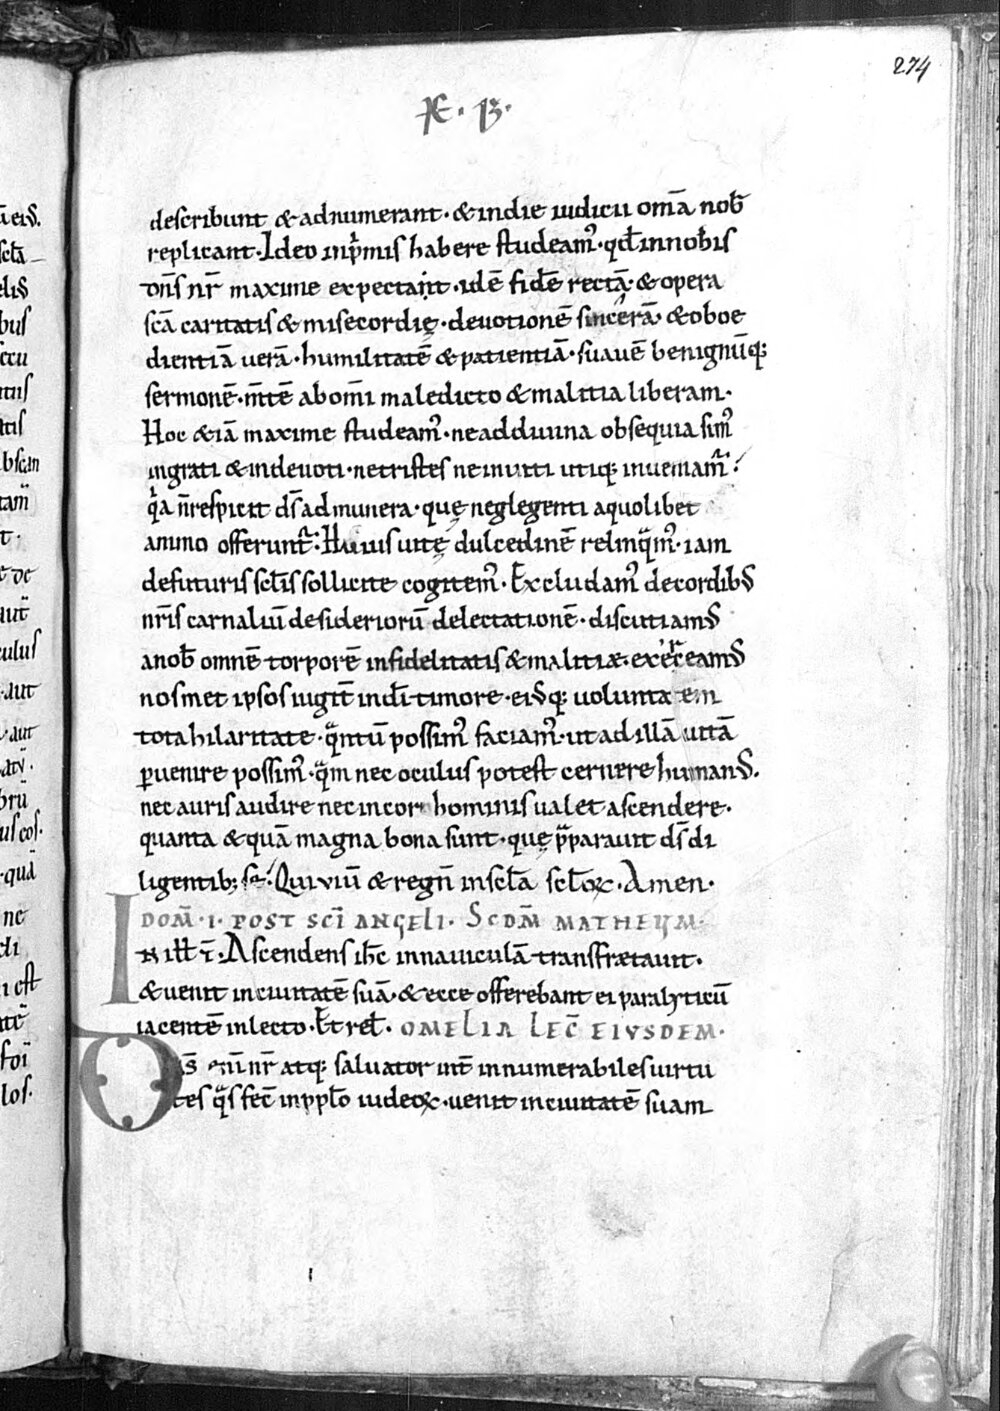 274
describunt & adnumerant · & indie iudicii om̄a nob̄
replicant · Ideo inp̍mis habere studeam᷒ · qd̄ innob̄is
dn̄s nr̄ maxime expectant · idē fidē rectā · & opera
sc̄a caritatis & misecordię · deuotionē sincerā · & oboe
dientiā uerā · humilitatē & patientiā · suauē benignū q;
sermonē · m̄tē abom̄i maledicto & malitia liberam ·
Hoc &iā maxime studeam᷒ · ne addiuina obsequia sim᷒
ingrati & indeuoti · netristes ne inuiti utiq; inueniam᷒ ·
q̍a n̄ respicit ds̄ ad munera · quę neglegenti aquolibet
animo offerunt᷑ · Huius uitę dulcedinē relinq̍m᷒ · iam
defuturis sc̄lis sollicite cogitem᷒ · Excludam᷒ decordib᷒
nr̄is carnaliū desideriorū delectationē · discutiam᷒
anob̄ omnē torporē infidelitatis & malitiæ · exerceam᷒
nosmet ipsos iugit̄ indi̅ timore · ei᷒q; uoluntatem
tota hilaritate · qͣntū possim᷒ faciam᷒ · ut ad illā uitā
ꝑuenire possim᷒ · qͣm nec oculus potest cernere human᷒ ·
nec auris audire nec incor hominis ualet ascendere ·
quanta & quā magna bona sunt · quę p̄parauit ds̄ di
ligentib; se · Qui uiū & regn̄ insc̄la sc̄loꝝ · Amen ·
DOM̄ · I · POST SCĪ ANGELI · SCDM̄ MATHEUM ·
IN ill̄ t̄ · Ascendens ih̄c innauiculā transfretauit ·
& uenit inciuitatē suā · & ecce offerebant ei paralyticū
iacentē inlecto · Et rel̄ · OMELIA LEC̄ EIUSDEM ·
Dn̄s &nim nr̄ atq; saluator int̄ innumerabiles uirtu
tes qͣs fec̄ inpplo̅ iudeoꝝ · uenit inciuitatē suam